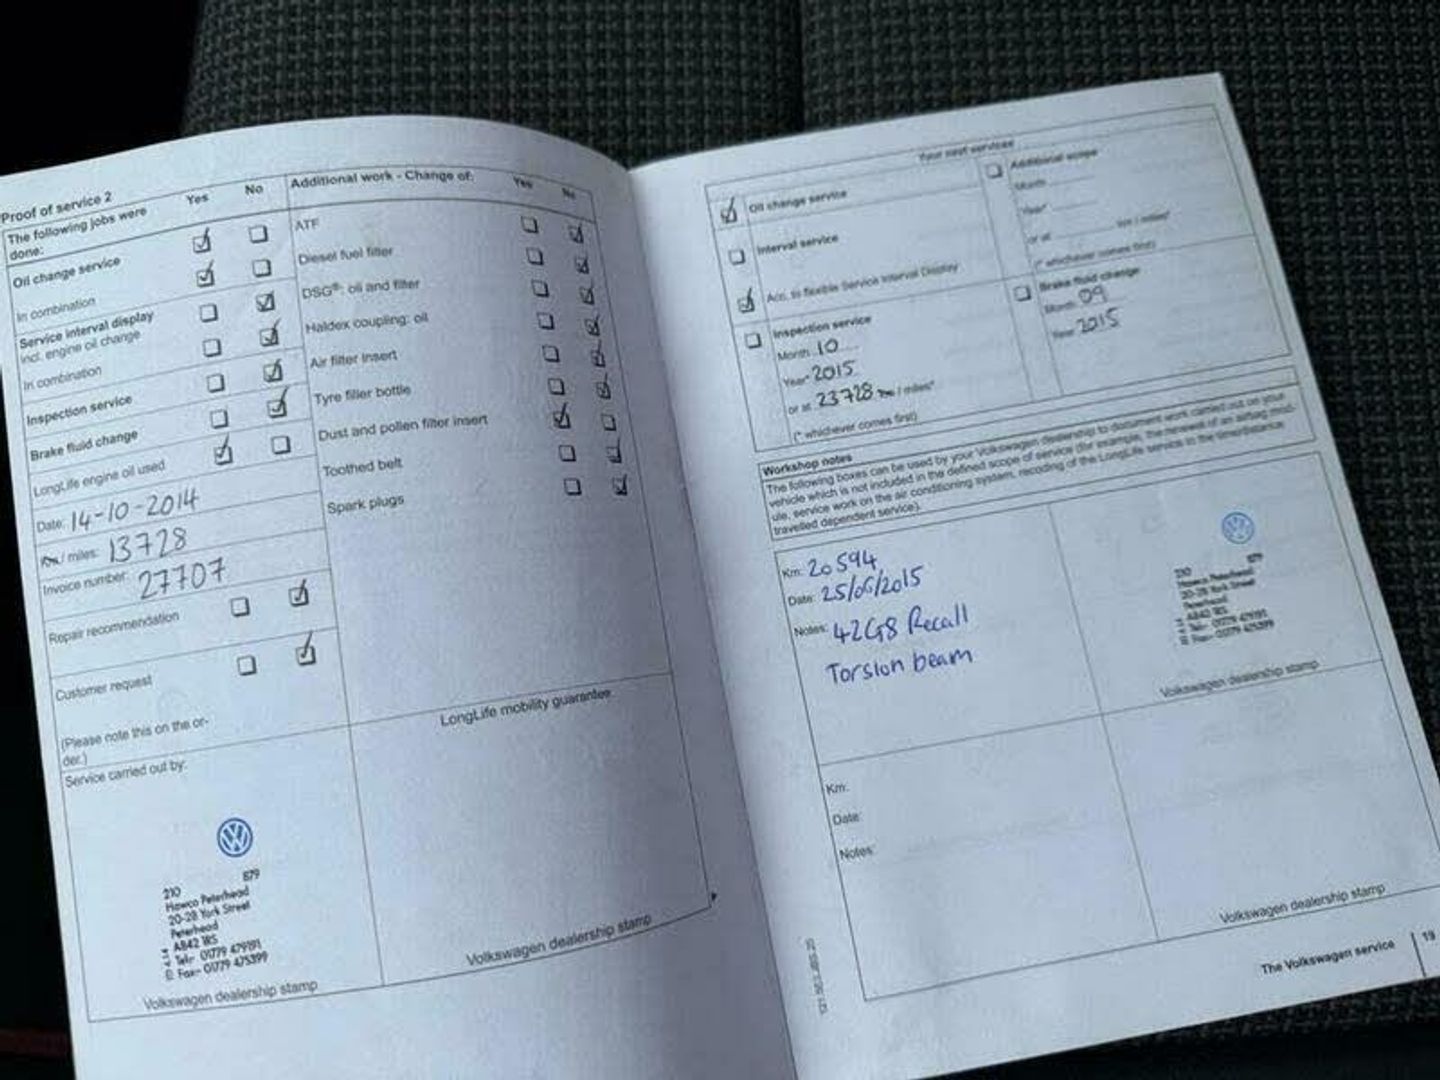 Proof of service 2
The following jobs were done:
Yes
No
Oil change service
In combination
Service interval display
incl. engine oil change
In combination
Inspection service
Brake fluid change
LongLife engine oil used
Date: 14-10-2014
Km / miles: 13728
Invoice number: 27707
Repair recommendation
Customer request
(Please note this on the or-
der.)
Service carried out by:
210 879
Hawco Peterhead
20-28 York Street
Peterhead
AB42 1RS
Tel:- 01779 479191
Fax:- 01779 475399
Volkswagen dealership stamp
Additional work - Change of:
Yes
No
ATF
Diesel fuel filter
DSG®: oil and filter
Haldex coupling: oil
Air filter insert
Tyre filler bottle
Dust and pollen filter insert
Toothed belt
Spark plugs
LongLife mobility guarantee
Volkswagen dealership stamp
Your next services
Oil change service
Interval service
Acc. to flexible Service Interval Display
Inspection service
Month 10
Year* 2015
or at 23728 km / miles*
(* whichever comes first)
Additional scope
Month
Year*
or at km / miles*
(* whichever comes first)
Brake fluid change
Month 09
Year 2015
Workshop notes
The following boxes can be used by your Volkswagen dealership to document work carried out on your
vehicle which is not included in the defined scope of service (for example, the renewal of an airbag mod-
ule, service work on the air conditioning system, recoding of the LongLife service to the time/distance
travelled dependent service).
Km: 20594
Date: 25/06/2015
Notes: 42G8 Recall
Torsion beam
210 879
Hawco Peterhead
20-28 York Street
Peterhead
AB42 1RS
Tel:- 01779 479191
Fax:- 01779 475399
Volkswagen dealership stamp
Km:
Date:
Notes:
Volkswagen dealership stamp
The Volkswagen service
19